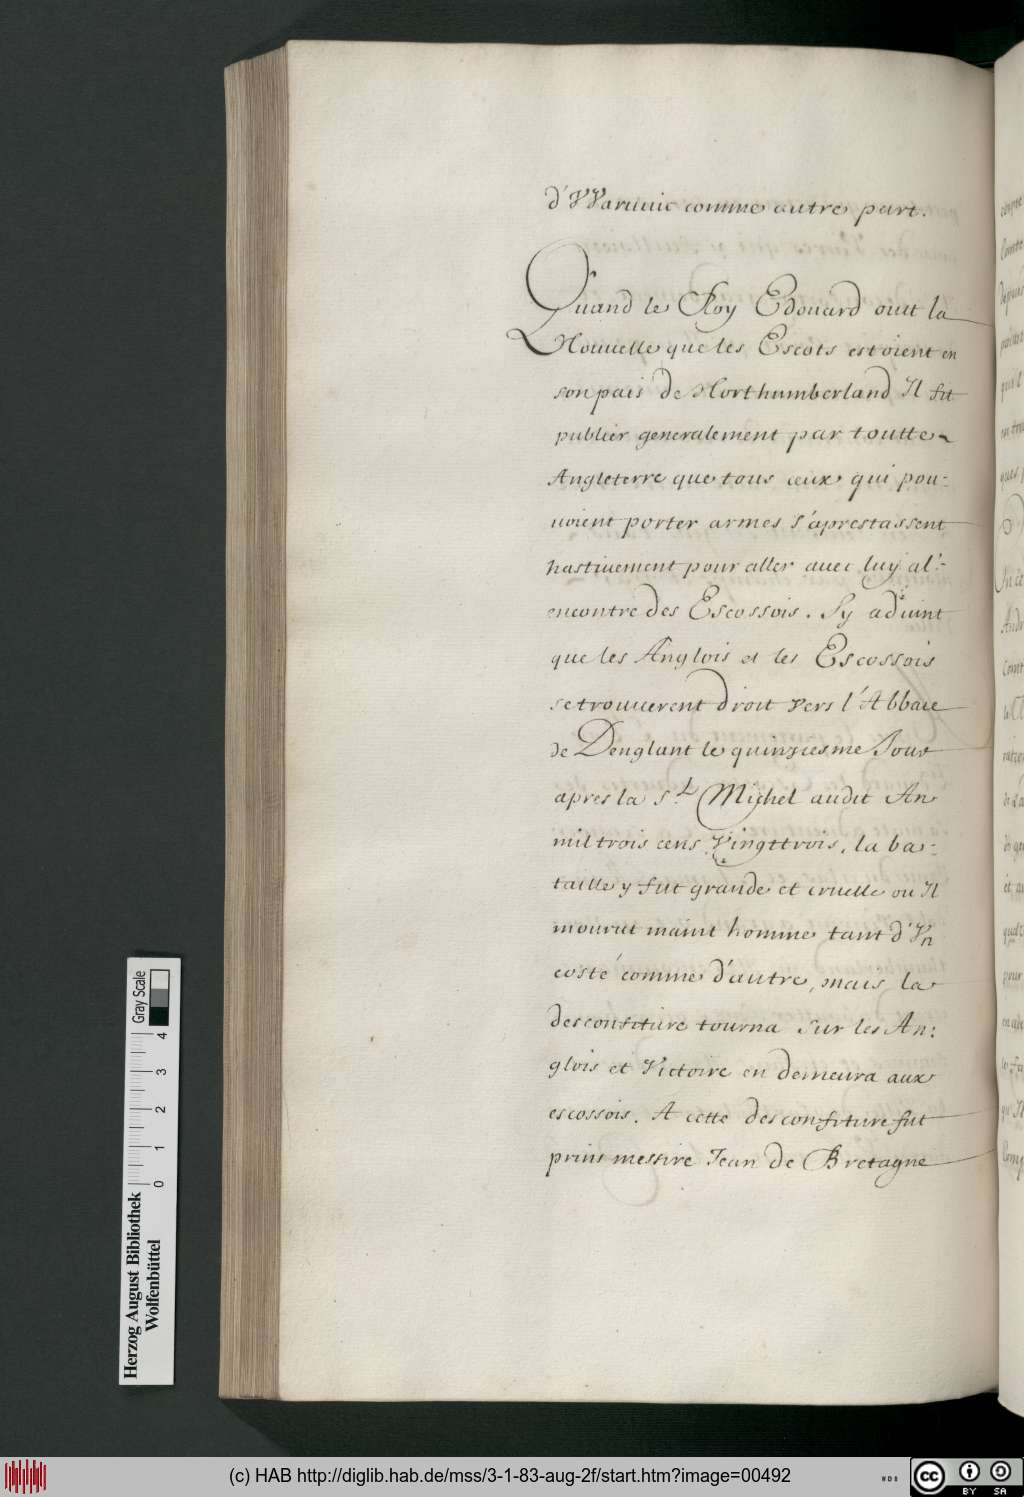 d'VVaruuic comme autre part.
Quand le Roy Edouard ouit la
Nouuelle que les Escots estoient en
son païs de Northumberland Il fit
publier generalement par toutte
Angleterre que tous ceux qui pou-
uoient porter armes s'aprestassent
hastiuement pour aller auec luy al'-
encontre des Escossois. Sy aduint
que les Anglois et les Escossois
se trouuerent droit vers l'Abbaie
de Denglant le quinziesme Jour
apres la St Michel audit An
mil trois cens Vingttrois, la ba-
taille y fut grande et cruelle ou Il
mourut maint homme tant d'Vn
costé comme d'autre, mais la
desconfiture tourna sur les An:
glois et Victoire en demeura aux
escossois. A cette desconfiture fut
prins messire Jean de Bretagne
Herzog August Bibliothek
Wolfenbüttel
0 1 2 3 4
Gray Scale
(c) HAB http://diglib.hab.de/mss/3-1-83-aug-2f/start.htm?image=00492
WDB
cc
BY SA